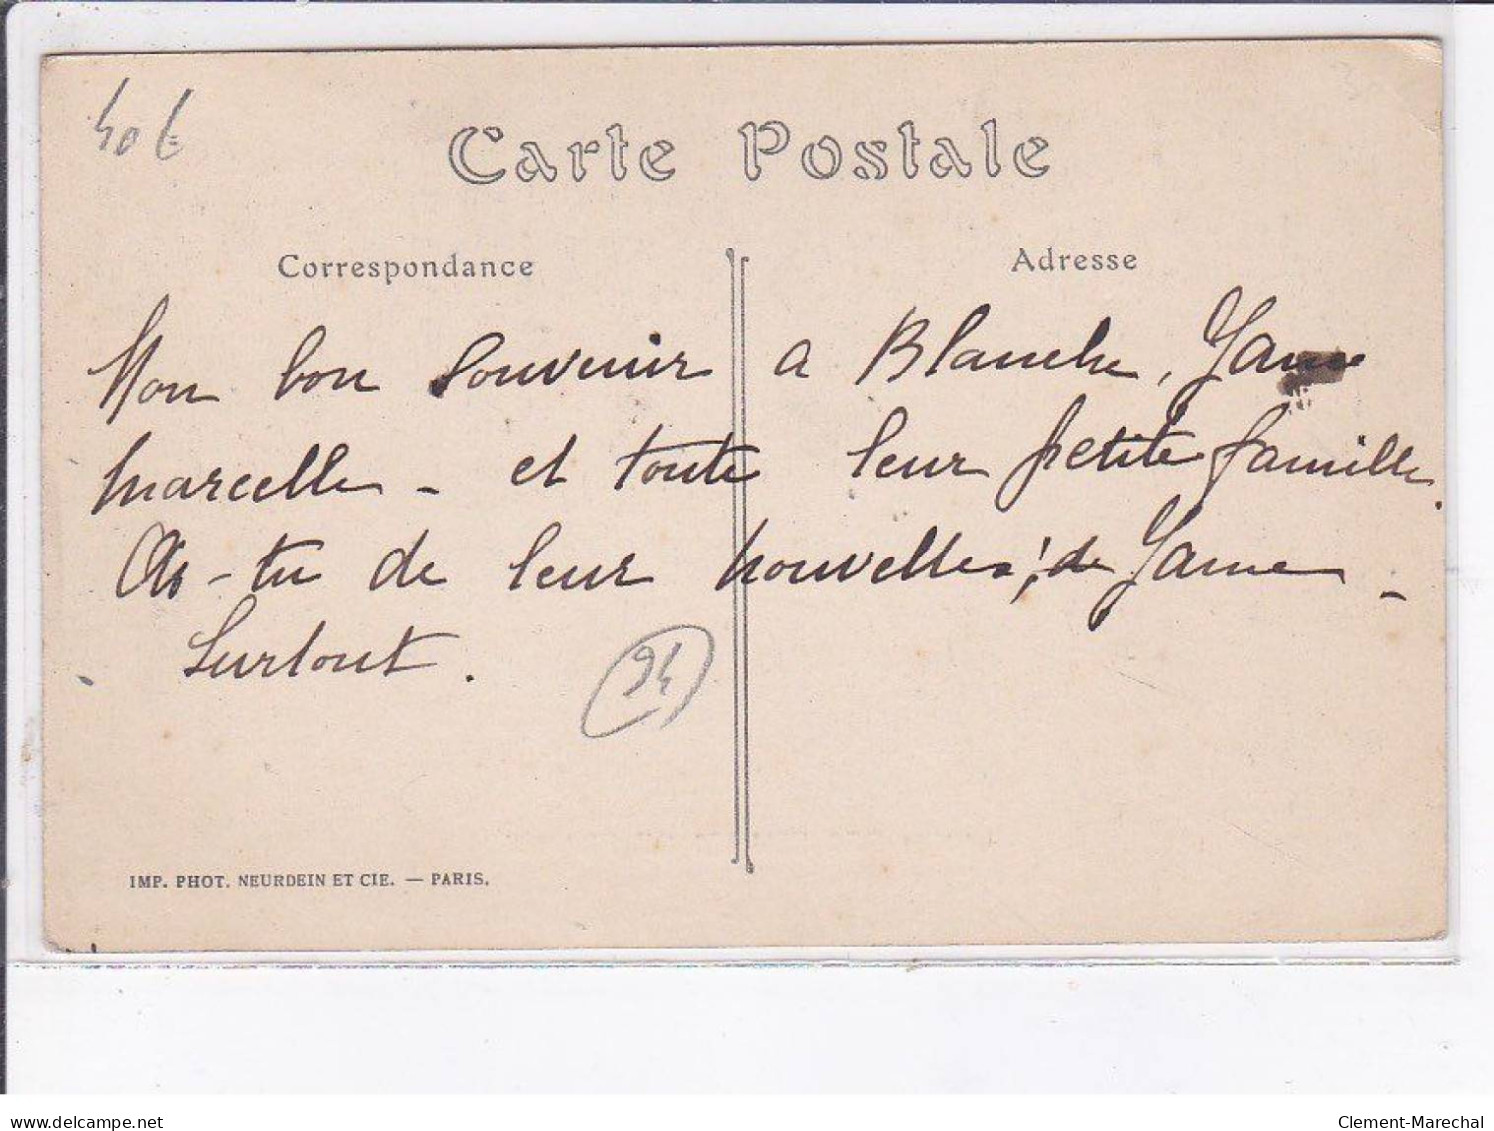 40€
Carte Postale
Correspondance
Adresse
Mon bon souvenir a Blanche,
Marcelle - et toute leur petite famille.
As-tu de leur nouvelles, de
Surtout.
94
IMP. PHOT. NEURDEIN ET CIE. — PARIS.
www.delcampe.net
Clement-Marechal